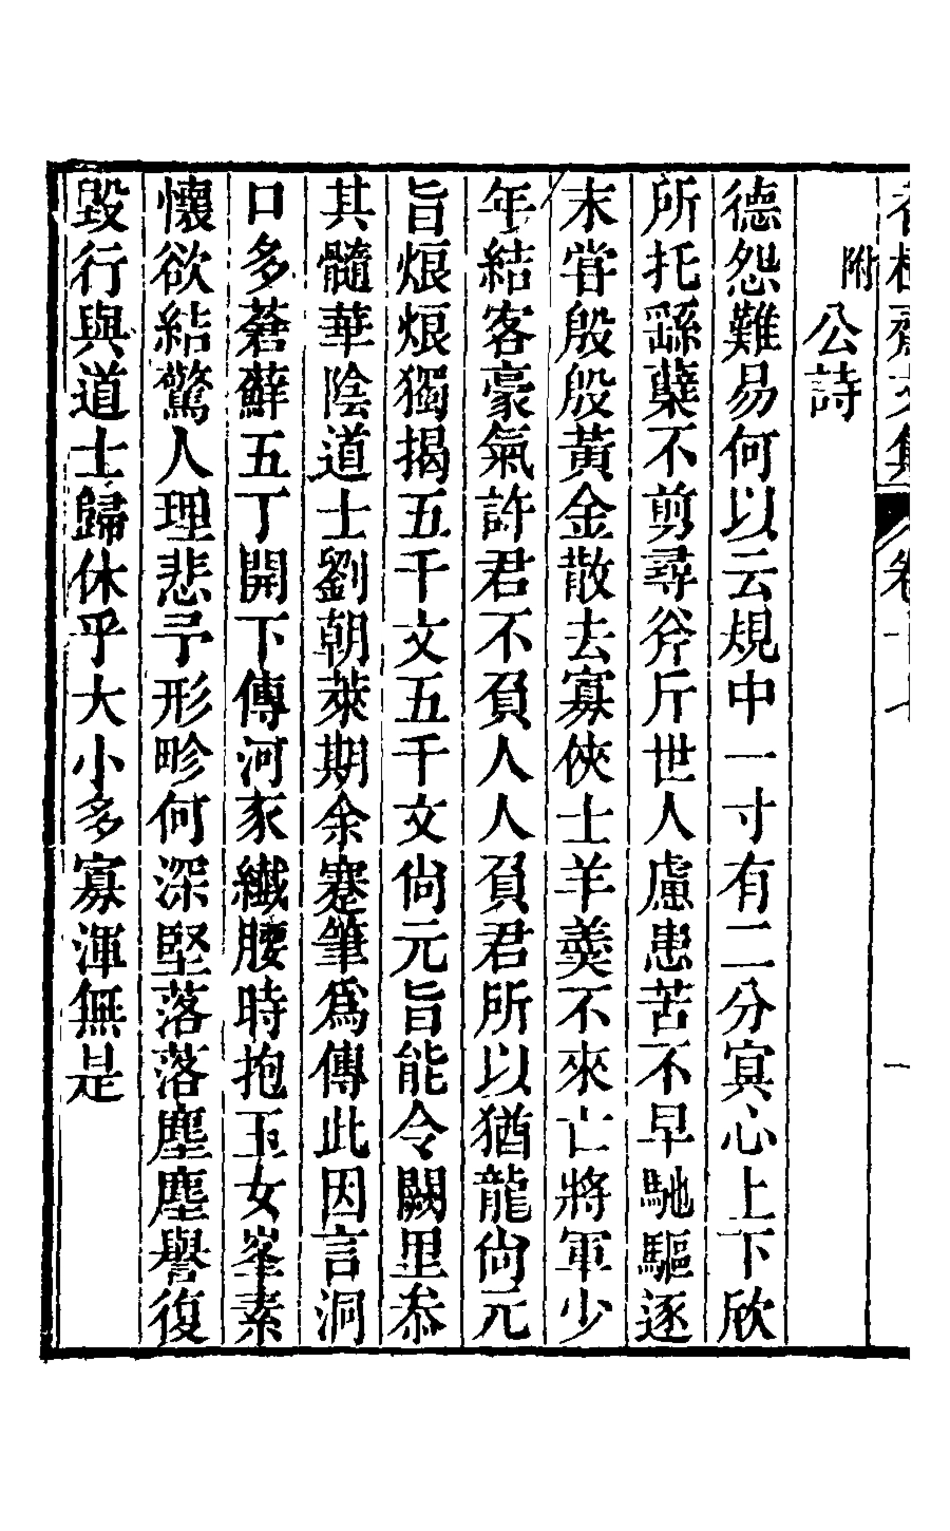 附
公詩
德怨難易何以云規中一寸有二分寘心上下欣
所托繇蘗不剪尋斧斤世人慮患苦不早馳驅逐
末甞殷殷黃金散去寡俠士羊羹不來亡將軍少
年結客豪氣許君不負人人負君所以猶龍尙元
旨烺烺獨揭五千文五千文尙元旨能令闕里忝
其髓華陰道士劉朝萊期余蹇筆爲傳此因言洞
口多蒼蘚五丁開下傳河豕纎腰時抱玉女峯素
懷欲結驚人理悲予形畛何深堅落落塵塵譽復
毀行與道士歸休乎大小多寡渾無是